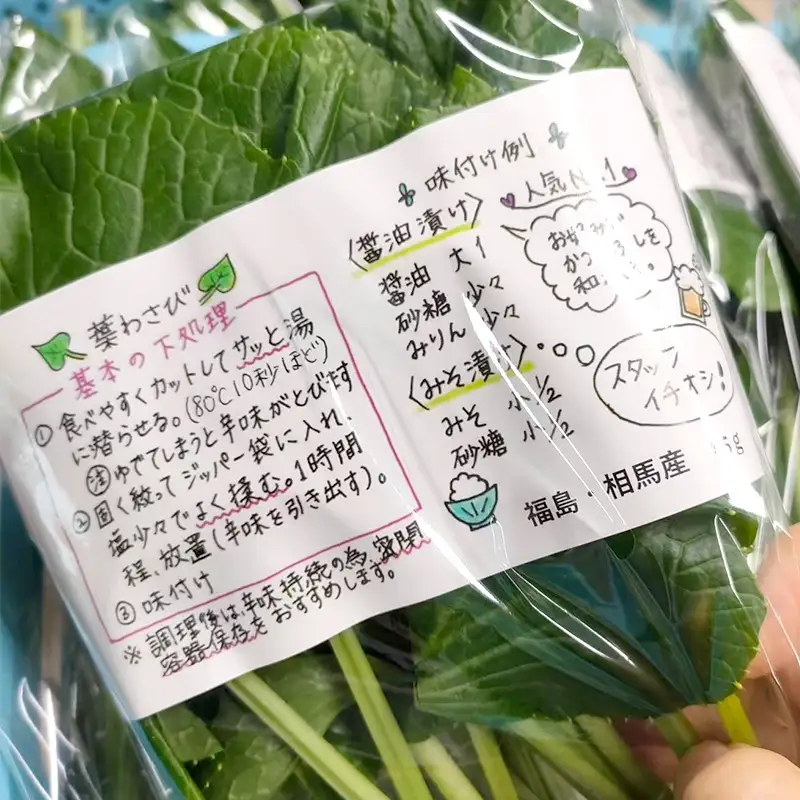 葉わさび
基本の下処理
① 食べやすくカットしてサッと湯
に潜らせる。(80℃10秒ほど)
注 ゆでてしまうと辛味がとびます
② 固く絞ってジッパー袋に入れ、
塩少々でよく揉む。1時間
程、放置(辛味を引き出す)。
③ 味付け
※調理後は、辛味持続の為、密閉
容器保存をおすすめします。
味付け例
〈醤油漬け〉
醤油 大1
砂糖 少々
みりん 少々
〈みそ漬け〉
みそ 小1/2
砂糖 小1/2
人気No.1
お好みで
かつおぶしを
スタッフ
イチオシ!
福島・相馬産